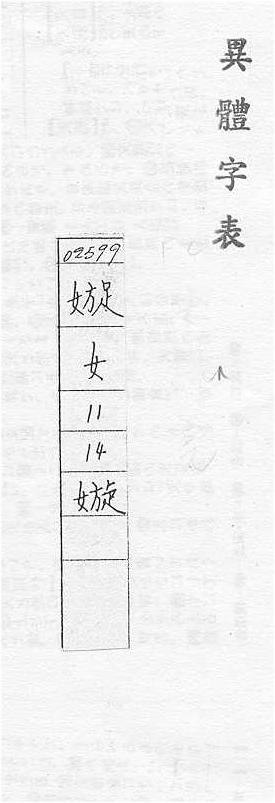 異體字表
02599
女
11
14
嫙